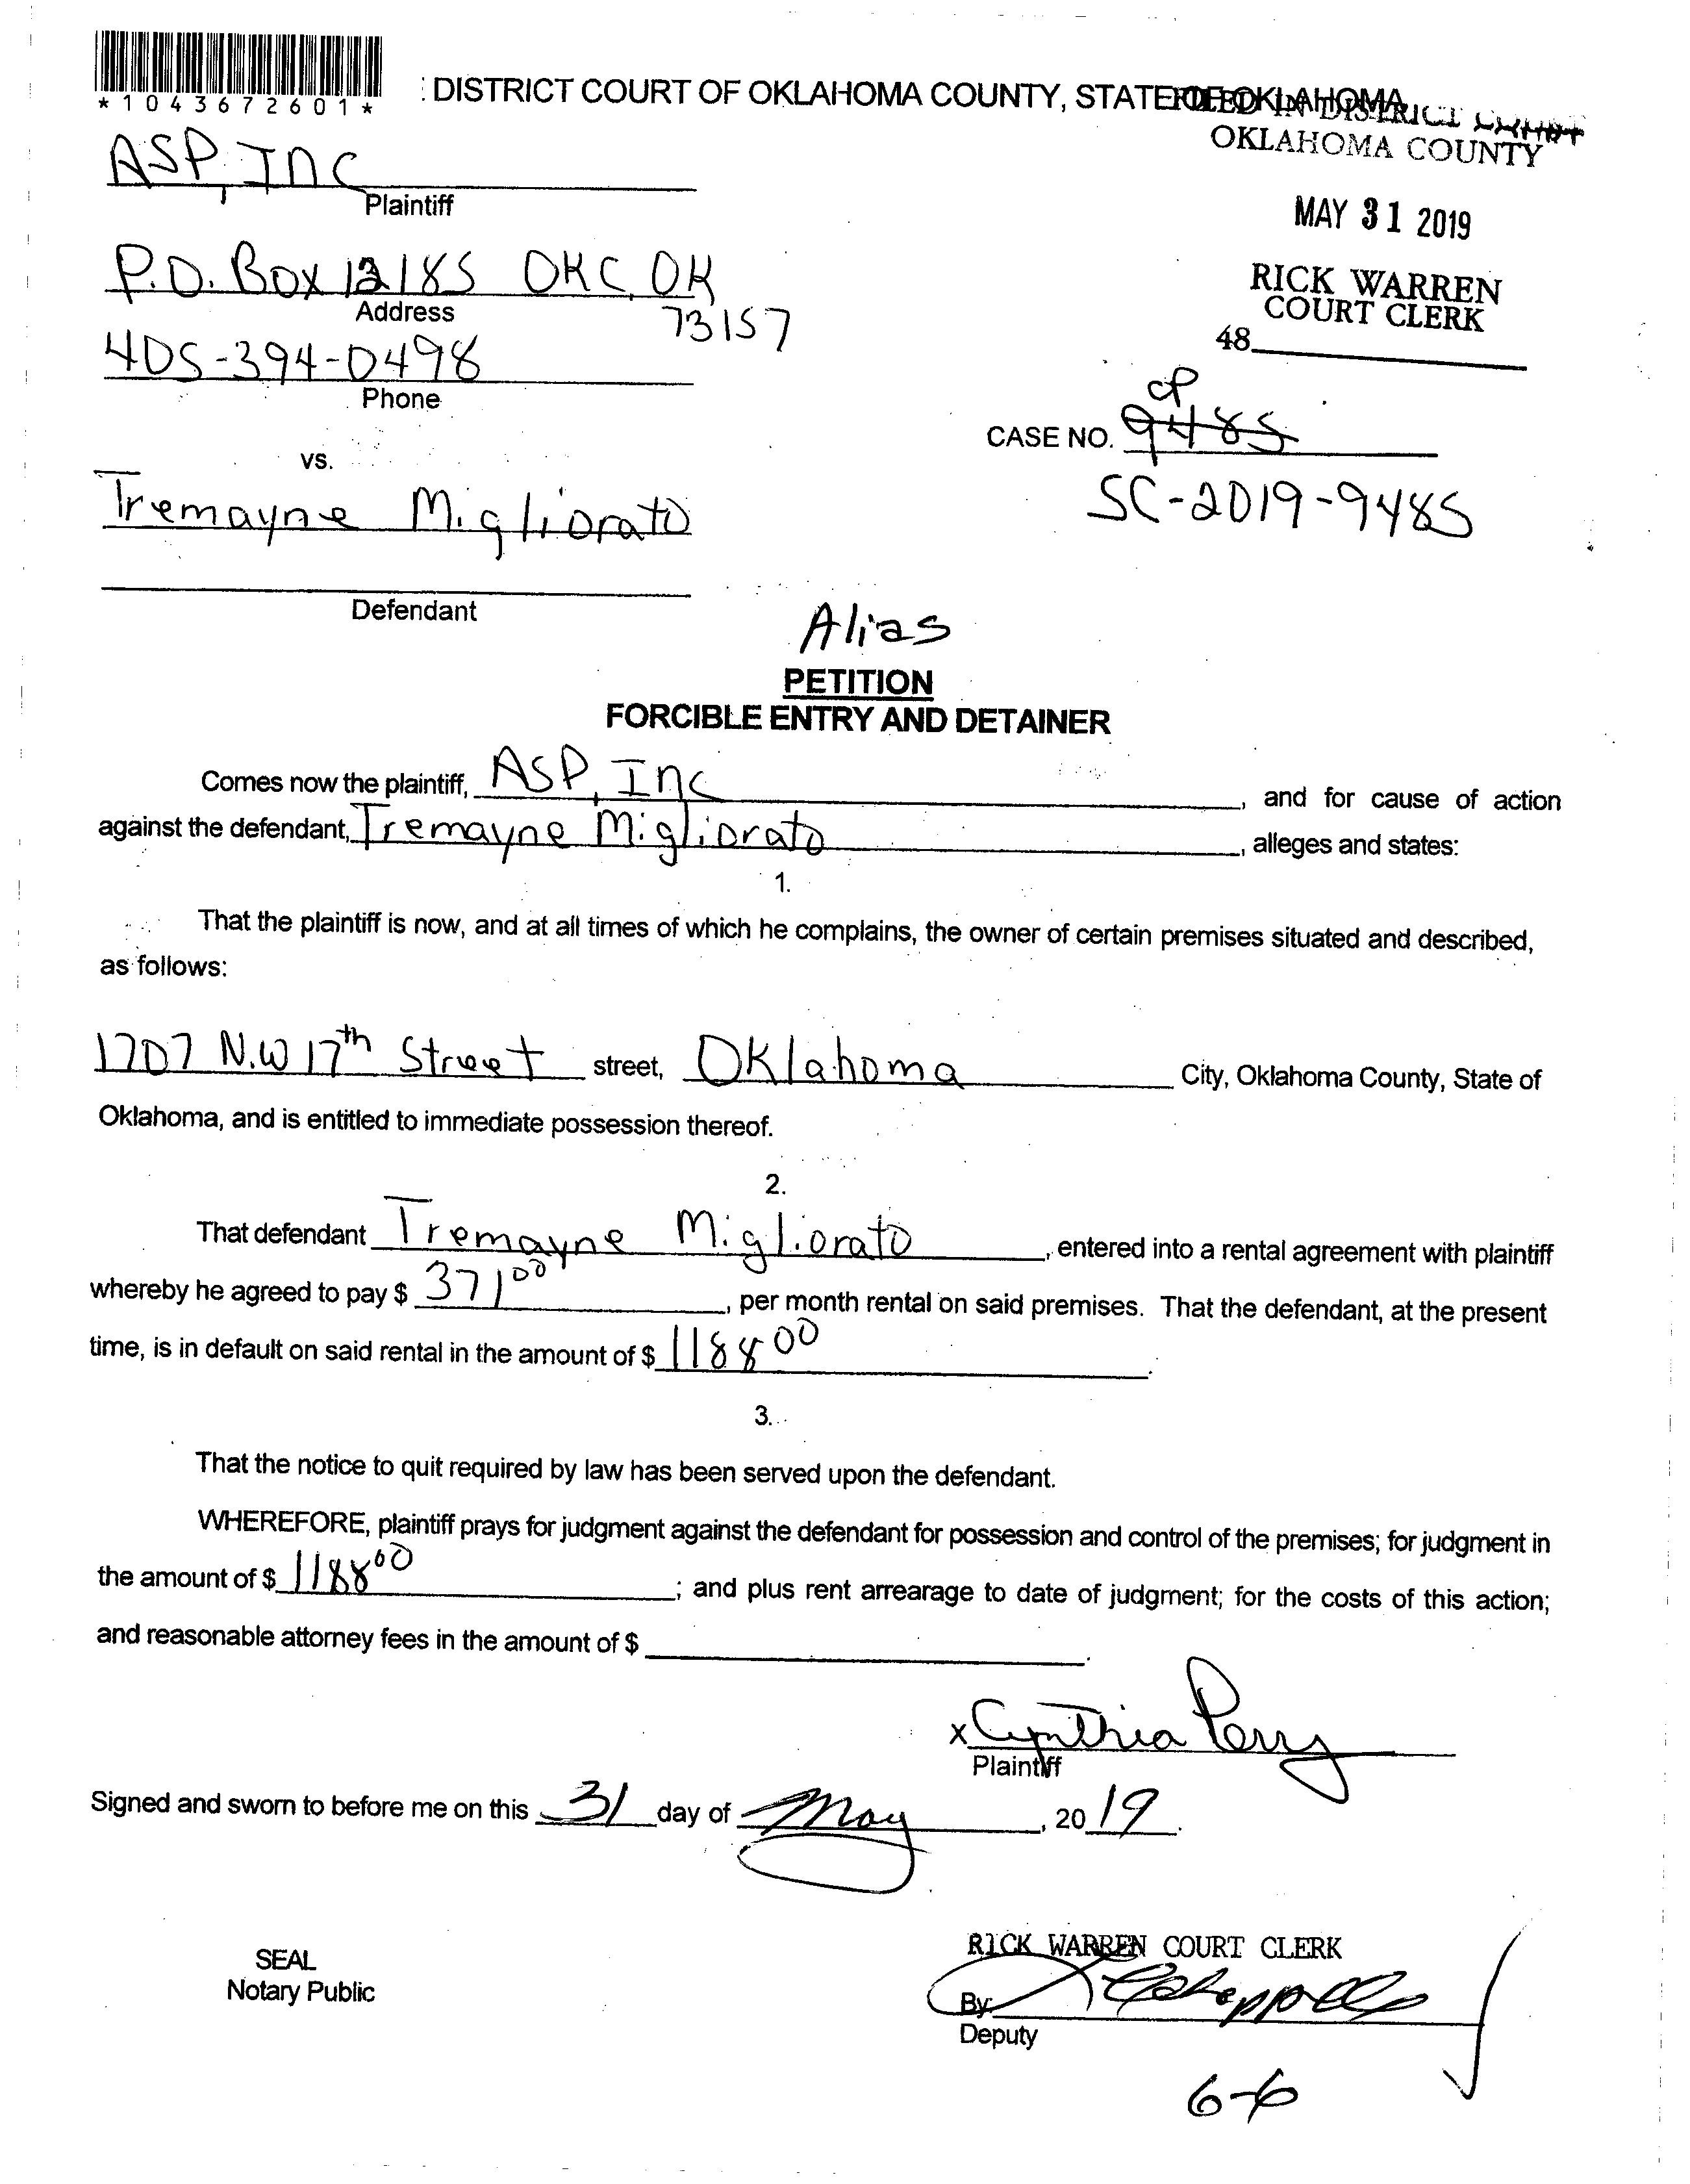 *1043672601*
: DISTRICT COURT OF OKLAHOMA COUNTY, STATE OF OKLAHOMA
FILED IN DISTRICT COURT
OKLAHOMA COUNTY
ASP, Inc
Plaintiff
MAY 31 2019
P.O. Box 12185 OKC, OK
73157
Address
RICK WARREN
COURT CLERK
48
405-394-0498
Phone
CP
CASE NO. 9485
SC-2019-9485
vs.
Tremayne Migliorato
Defendant
Alias
PETITION
FORCIBLE ENTRY AND DETAINER
Comes now the plaintiff, ASP, Inc, and for cause of action
against the defendant, Tremayne Migliorato, alleges and states:
1.
That the plaintiff is now, and at all times of which he complains, the owner of certain premises situated and described,
as follows:
1707 N.W 17th Street street, Oklahoma City, Oklahoma County, State of
Oklahoma, and is entitled to immediate possession thereof.
2.
That defendant Tremayne Migliorato, entered into a rental agreement with plaintiff
whereby he agreed to pay $ 371 00, per month rental on said premises. That the defendant, at the present
time, is in default on said rental in the amount of $ 1188 00.
3.
That the notice to quit required by law has been served upon the defendant.
WHEREFORE, plaintiff prays for judgment against the defendant for possession and control of the premises; for judgment in
the amount of $ 1188 00; and plus rent arrearage to date of judgment; for the costs of this action;
and reasonable attorney fees in the amount of $
x Cynthia Perry
Plaintiff
Signed and sworn to before me on this 31 day of May, 2019.
SEAL
Notary Public
RICK WARREN COURT CLERK
By:
Deputy
6-6